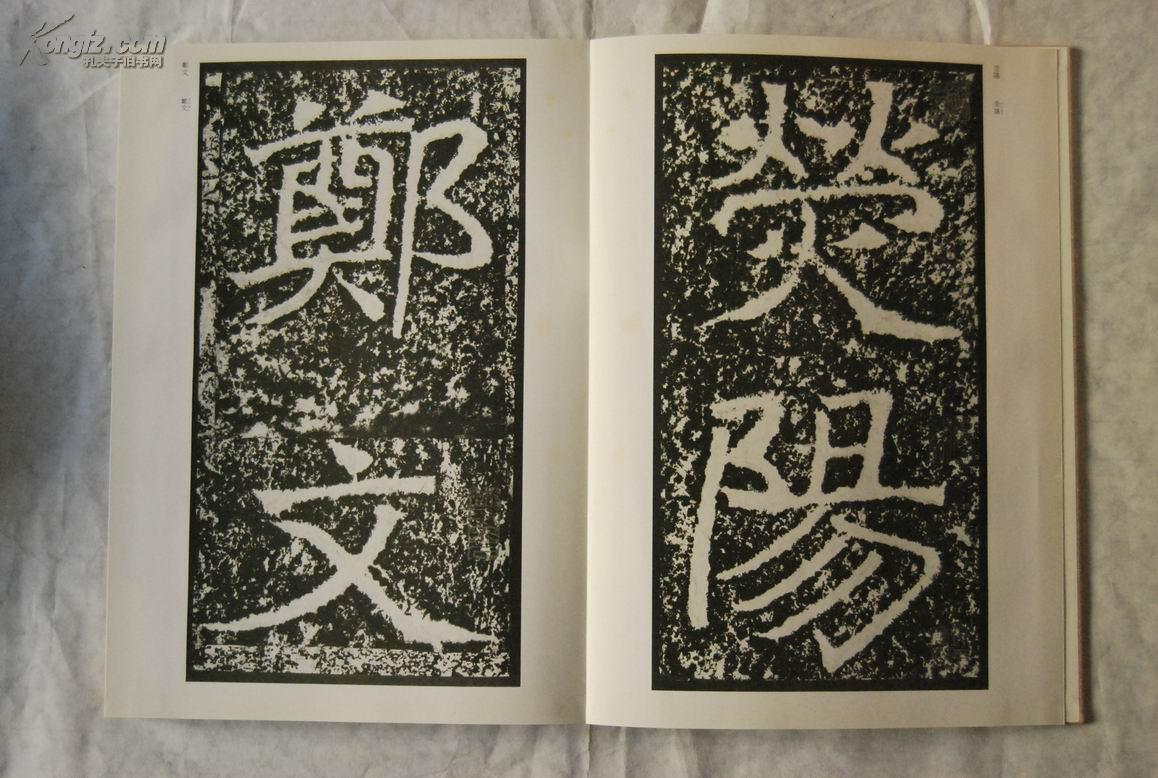 Kongfz.com
孔夫子旧书网
熒陽
鄭文
鄭文
鄭文